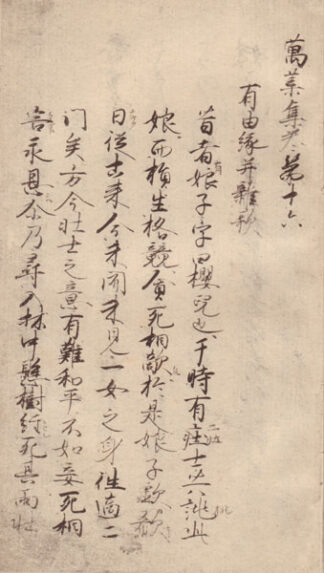 萬葉集巻第十六
有由縁并雜歌
昔者有娘子字曰櫻兒也于時有二壮士共誂此
娘而損生格競貪死相敵於是娘子歔欷
曰従古来今未聞未見一女之身徃適二
門矣方今壮士之意有難和平不如妾死相
害永息尒乃尋入林中懸樹經死其兩壮